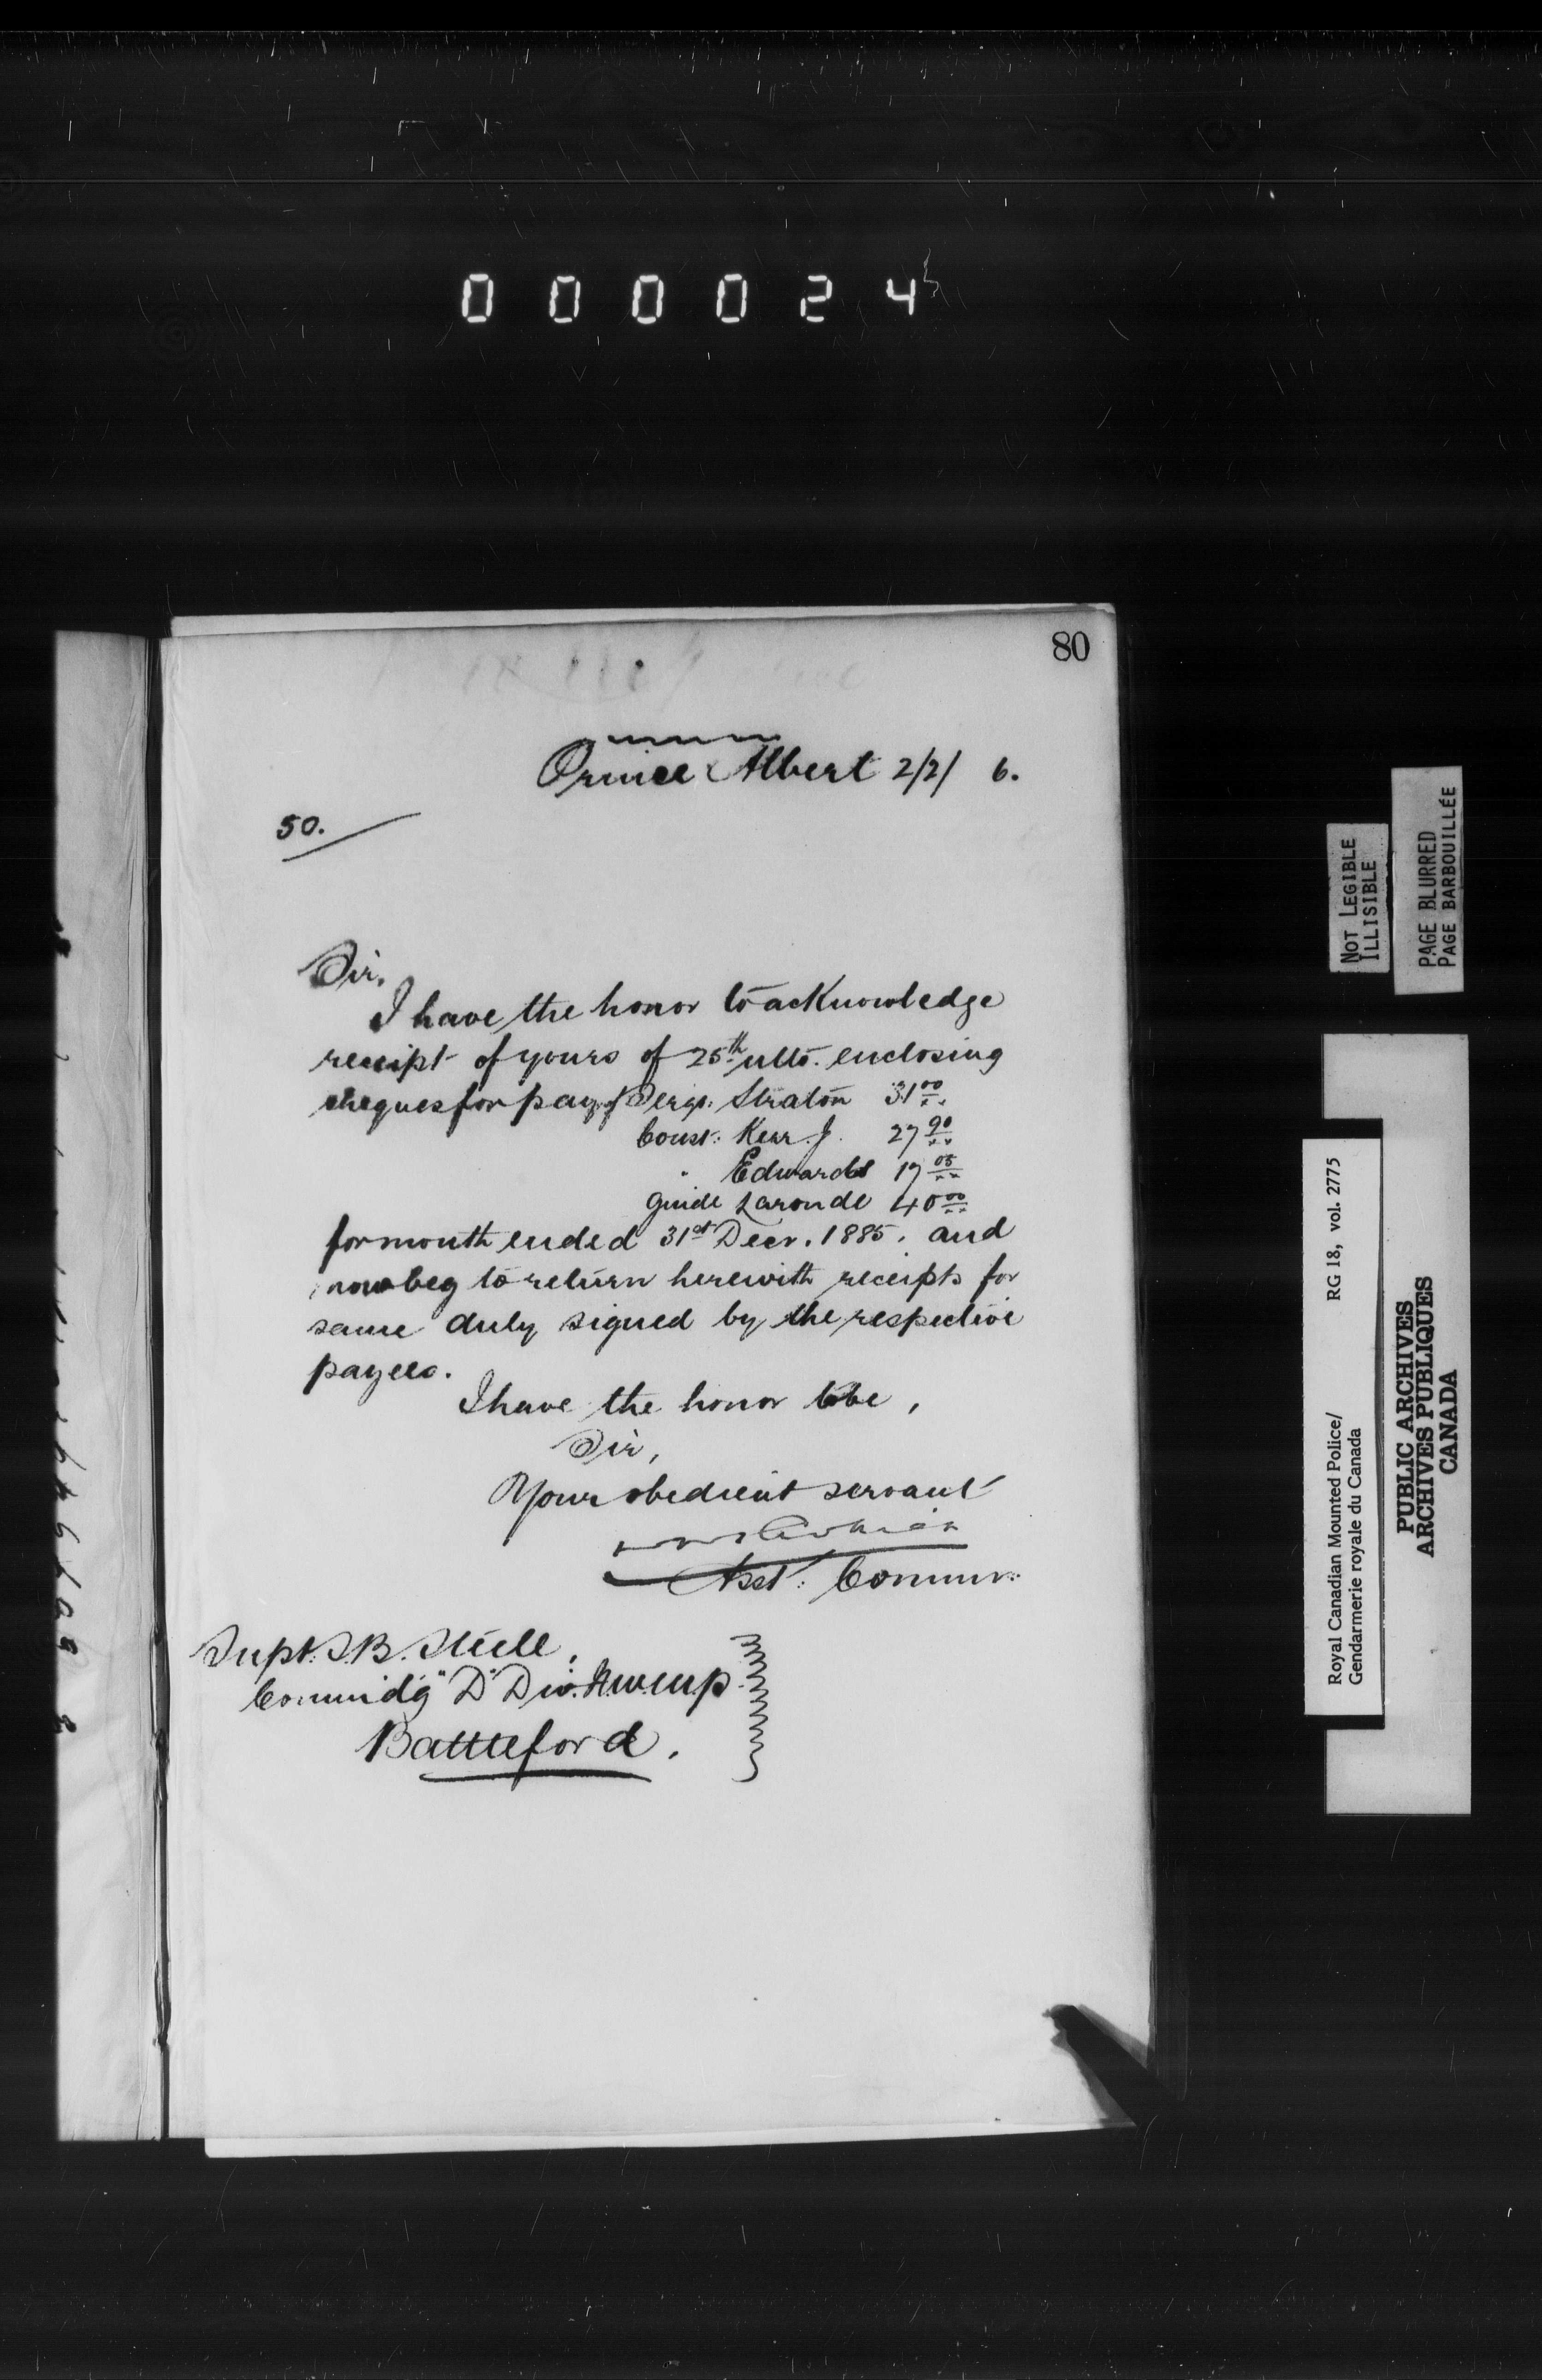 000024
80
Prince Albert 2/2/ 6.
50.
Sir,
I have the honor to acknowledge
receipt of yours of 25th ulto. enclosing
cheques for pay of Sergt. Straton 31 00
Const. Kerr J. 27 90
" Edwards 17 05
Guide Laronde 40 00
for month ended 31st Decr. 1885. and
now beg to return herewith receipts for
same duly signed by the respective
payees.
I have the honor to be,
Sir,
Your obedient servant
Asst. Commr.
Supt. S.B. Steele,
Commdg "D" Div. N.W.M.P.
Battleford.
NOT LEGIBLE
ILLISIBLE
PAGE BLURRED
PAGE BARBOUILLÉE
Royal Canadian Mounted Police/ RG 18, vol. 2775
Gendarmerie royale du Canada
PUBLIC ARCHIVES
ARCHIVES PUBLIQUES
CANADA